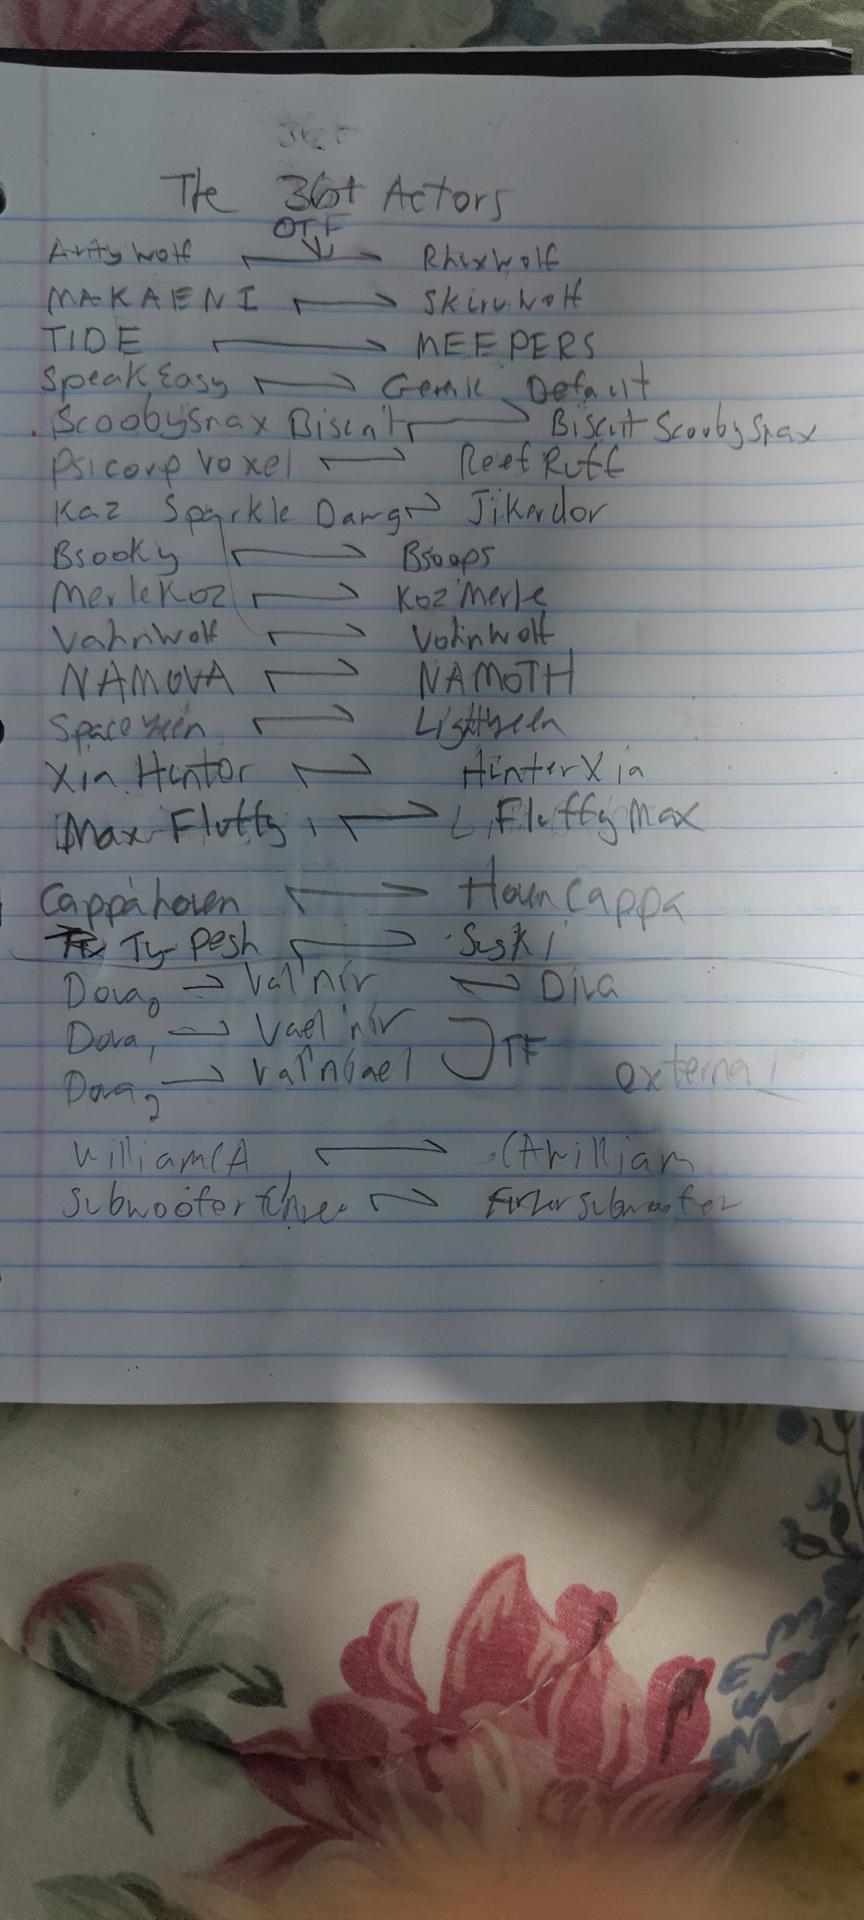 The 36+ Actors
OTF
Arity Wolf Rhuxwolf
MAKAENI Skiruwolf
TIDE MEEPERS
SpeakEasy Gemic Default
ScoobySnax Biscuit Biscuit ScoobySnax
Psicorp Voxel Reef Ruff
Kaz Sparkle Dawg Jikardor
Bsooky Bsoops
MerleKoz Koz Merle
Vahnwolf Vohnwolf
NAMOVA NAMOTH
Space Lightyeen
Xin Hunter HunterXin
Max Fluffy Fluffy Max
Cappahoven HovenCappa
Ty Pesh Suski
Dova0 → Val'nir Diva
Dova1 → Vael'nir
TF
Dova2 → Val'n
external
WilliamCA CAwilliam
Subwoofer Subwoofer